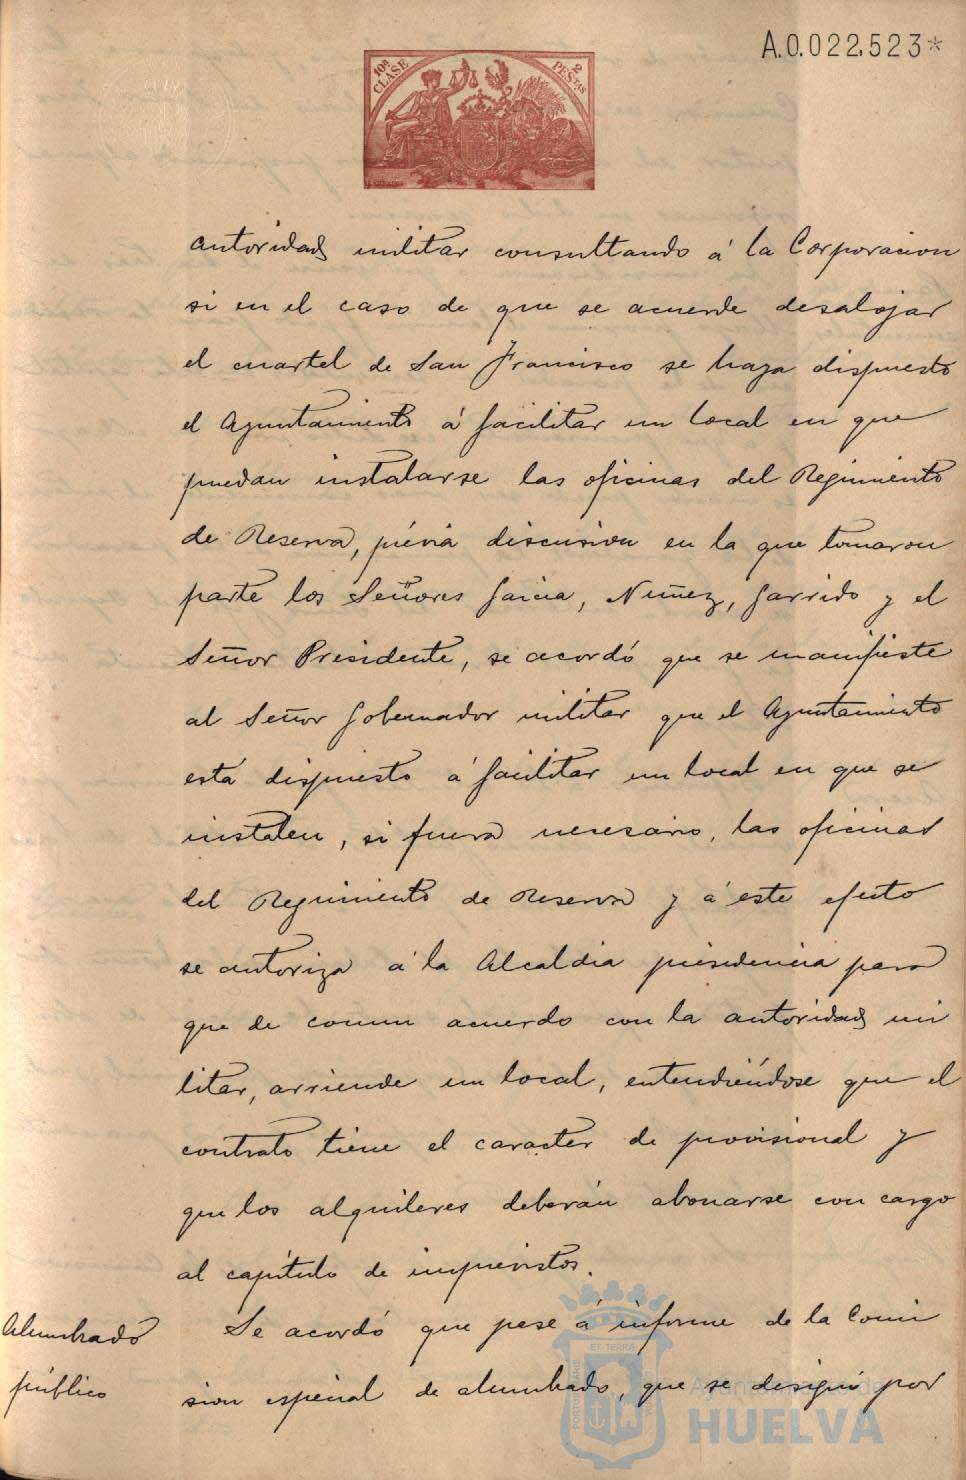 A.0.022,523*
10ª CLASE
2 PESTAS
autoridad militar consultando á la Corporacion
si en el caso de que se acuerde desalojar
el cuartel de San Francisco se haya dispuesto
el Ayuntamiento á facilitar un local en que
puedan instalarse las oficinas del Regimiento
de Reserva, prévia discusion en la que tomaron
parte los Señores Garcia, Nuñez, Garrido y el
Señor Presidente, se acordó que se manifieste
al Señor Gobernador militar que el Ayuntamiento
está dispuesto á facilitar un local en que se
instalen, si fuera necesario, las oficinas
del Regimiento de Reserva y á este efecto
se autoriza á la Alcaldia presidencia para
que de comun acuerdo con la autoridad mi
litar, arriende un local, entendiéndose que el
contrato tiene el caracter de provisional y
que los alquileres deberán abonarse con cargo
al capítulo de imprevistos.
Alumbrado
público
Se acordó que pase á informe de la Comi
sion especial de alumbrado, que se designó por
Ayuntamiento de
HUELVA